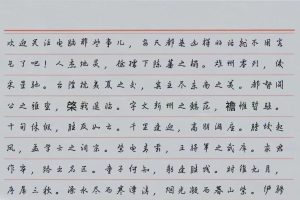 欢迎关注电脑那些事儿,每天都是这样的话就不用客
气了吧!人杰地灵,徐孺下陈蕃之榻。雄州雾列,俊
采星驰。台隍枕夷夏之交,宾主尽东南之美。都督阎
公之雅望,棨戟遥临。宇文新州之懿范,襜帷暂驻。
十旬休假,胜友如云。千里逢迎,高朋满座。腾蛟起
凤,孟学士之词宗。紫电青霜,王将军之武库。家君
作宰,路出名区。童子何知,躬逢胜饯。时维九月,
序属三秋。潦水尽而寒潭清,烟光凝而暮山紫。俨骖